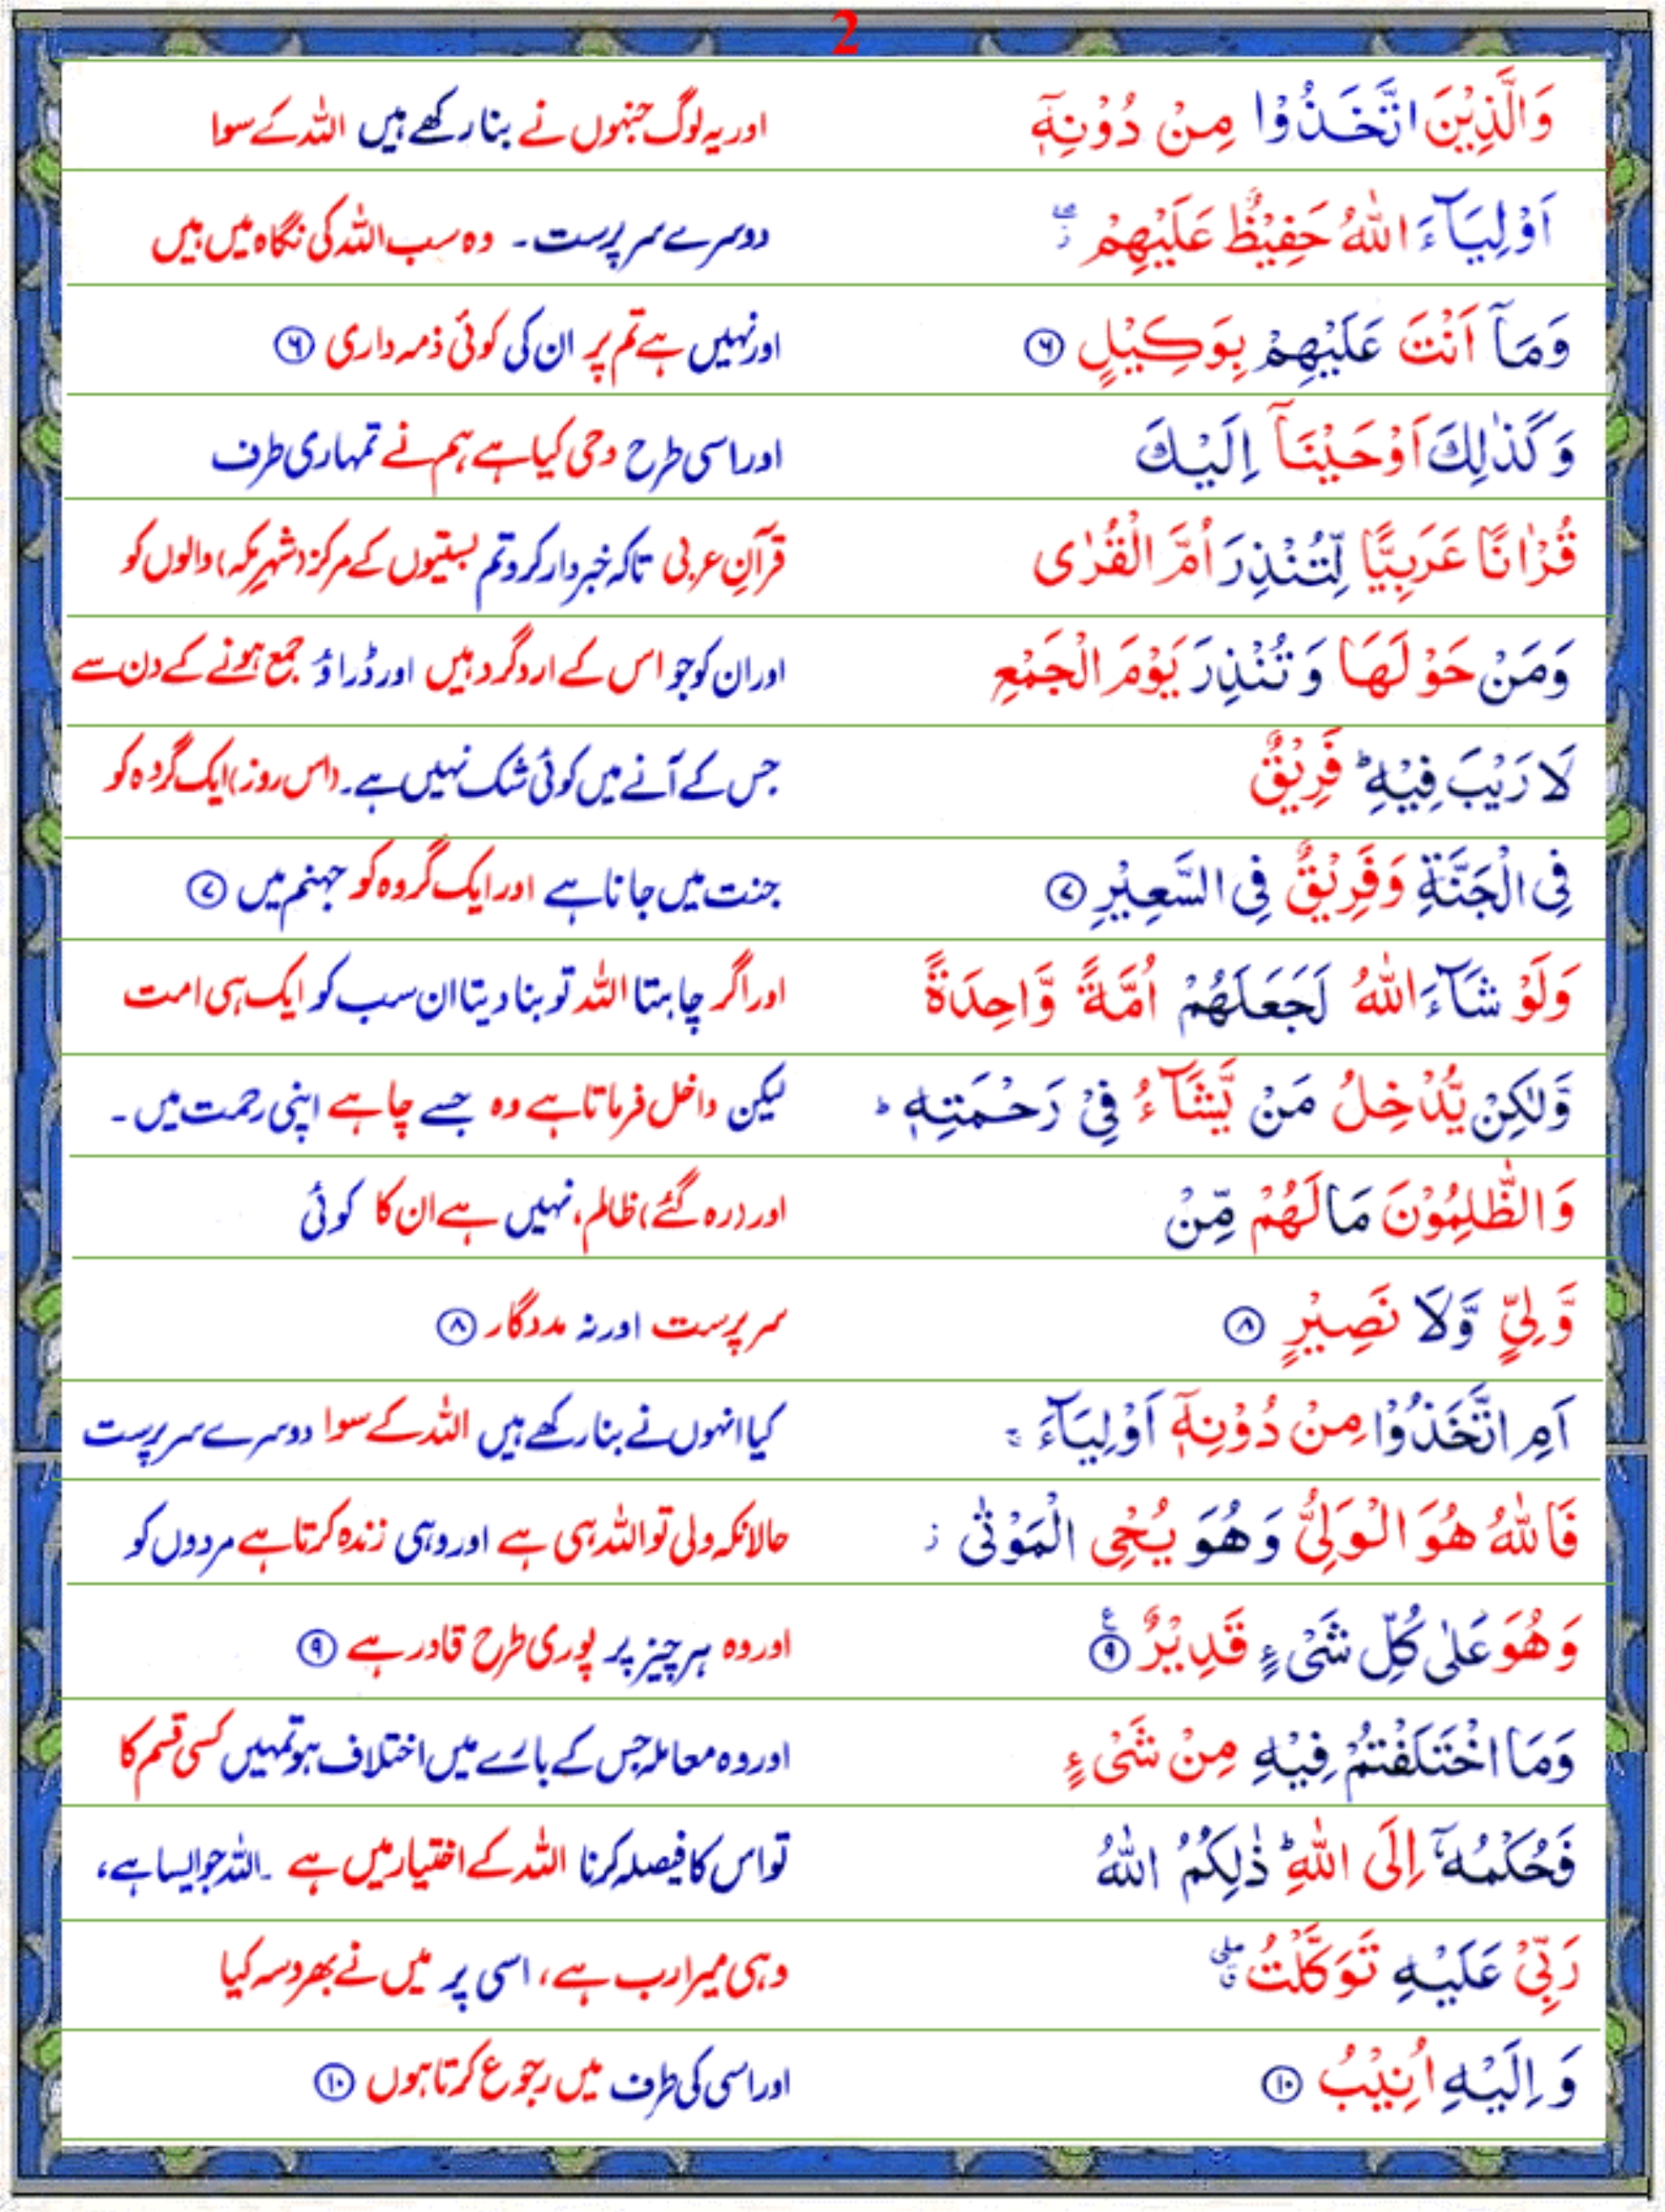 2
وَالَّذِيْنَ اتَّخَذُوْا مِنْ دُوْنِهٖٓ اور یہ لوگ جنہوں نے بنا رکھے ہیں اللہ کے سوا
اَوْلِيَآءَ اللّٰهُ حَفِيْظٌ عَلَيْهِمْ ۖز دوسرے سرپرست۔ وہ سب اللہ کی نگاہ میں ہیں
وَمَآ اَنْتَ عَلَيْهِمْ بِوَكِيْلٍ ۶ اور نہیں ہے تم پر ان کی کوئی ذمہ داری ۶
وَكَذٰلِكَ اَوْحَيْنَآ اِلَيْكَ اور اسی طرح وحی کیا ہے ہم نے تمہاری طرف
قُرْاٰنًا عَرَبِيًّا لِّتُنْذِرَ اُمَّ الْقُرٰى قرآنِ عربی تاکہ خبردار کرو تم بستیوں کے مرکز (شہرِ مکہ) والوں کو
وَمَنْ حَوْلَهَا وَتُنْذِرَ يَوْمَ الْجَمْعِ اور ان کو جو اس کے ارد گرد ہیں اور ڈراؤ جمع ہونے کے دن سے
لَا رَيْبَ فِيْهِ ؕ فَرِيْقٌ جس کے آنے میں کوئی شک نہیں ہے۔ (اس روز) ایک گروہ کو
فِى الْجَنَّةِ وَفَرِيْقٌ فِى السَّعِيْرِ ۷ جنت میں جانا ہے اور ایک گروہ کو جہنم میں ۷
وَلَوْ شَآءَ اللّٰهُ لَجَعَلَهُمْ اُمَّةً وَّاحِدَةً اور اگر چاہتا اللہ تو بنا دیتا ان سب کو ایک ہی امت
وَّلٰكِنْ يُّدْخِلُ مَنْ يَّشَآءُ فِىْ رَحْمَتِهٖ ؕ لیکن داخل فرماتا ہے وہ جسے چاہے اپنی رحمت میں۔
وَالظّٰلِمُوْنَ مَا لَهُمْ مِّنْ اور (رہ گئے) ظالم، نہیں ہے ان کا کوئی
وَّلِىٍّ وَّلَا نَصِيْرٍ ۸ سرپرست اور نہ مددگار ۸
اَمِ اتَّخَذُوْا مِنْ دُوْنِهٖٓ اَوْلِيَآءَ ۚ کیا انہوں نے بنا رکھے ہیں اللہ کے سوا دوسرے سرپرست
فَاللّٰهُ هُوَ الْوَلِىُّ وَهُوَ يُحْىِ الْمَوْتٰى ز حالانکہ ولی تو اللہ ہی ہے اور وہی زندہ کرتا ہے مردوں کو
وَهُوَ عَلٰى كُلِّ شَىْءٍ قَدِيْرٌ ۹ع اور وہ ہر چیز پر پوری طرح قادر ہے ۹
وَمَا اخْتَلَفْتُمْ فِيْهِ مِنْ شَىْءٍ اور وہ معاملہ جس کے بارے میں اختلاف ہو تمہیں کسی قسم کا
فَحُكْمُهٗٓ اِلَى اللّٰهِ ؕ ذٰلِكُمُ اللّٰهُ تو اس کا فیصلہ کرنا اللہ کے اختیار میں ہے ۔اللہ جو ایسا ہے،
رَبِّىْ عَلَيْهِ تَوَكَّلْتُ ۖق وہی میرا رب ہے، اسی پر میں نے بھروسہ کیا
وَاِلَيْهِ اُنِيْبُ ۱۰ اور اسی کی طرف میں رجوع کرتا ہوں ۱۰